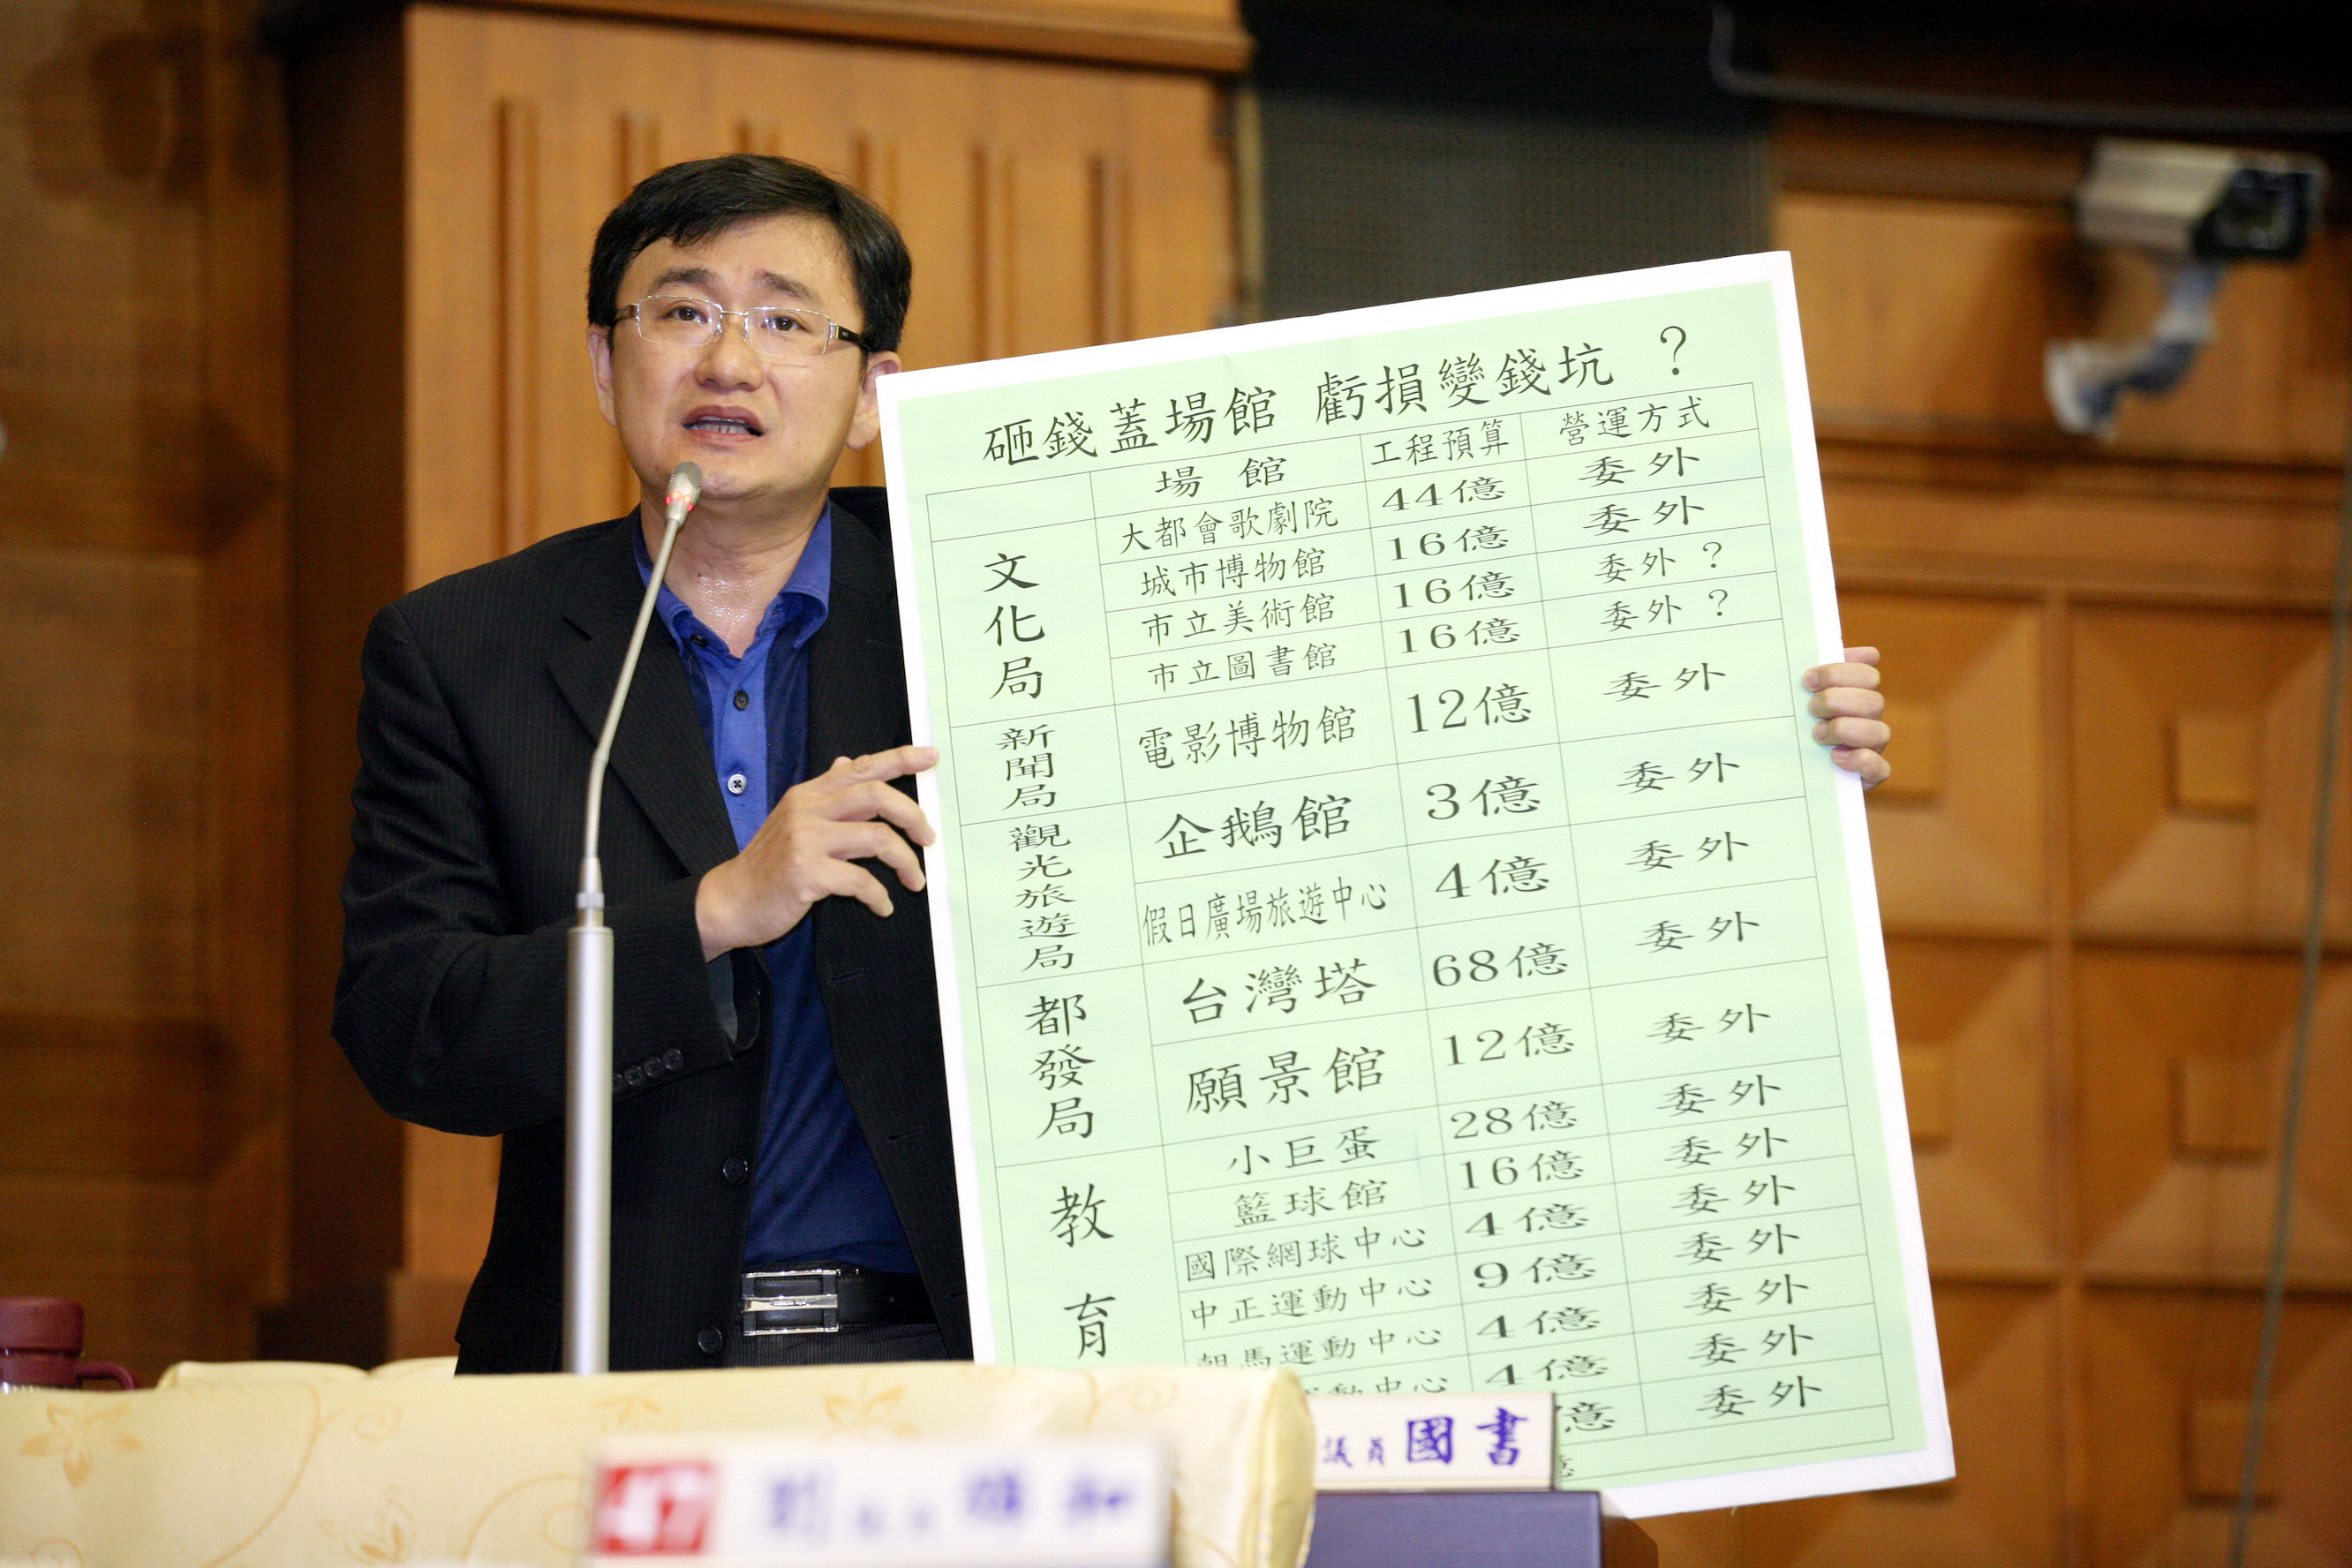 砸錢蓋場館 虧損變錢坑 ？
場 館 工程預算 營運方式
文化局
大都會歌劇院 44億 委外
城市博物館 16億 委外
市立美術館 16億 委外？
市立圖書館 16億 委外？
新聞局
電影博物館 12億 委外
觀光旅遊局
企鵝館 3億 委外
假日廣場旅遊中心 4億 委外
都發局
台灣塔 68億 委外
願景館 12億 委外
教育
小巨蛋 28億 委外
籃球館 16億 委外
國際網球中心 4億 委外
中正運動中心 9億 委外
朝馬運動中心 4億 委外
動中心 4億 委外
億 委外
議員 國書
47